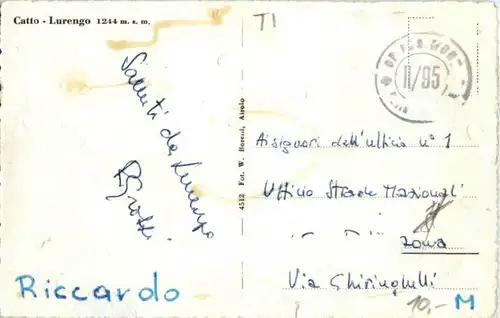 Catto - Lurengo 1244 m. s. m.
TI
II/95
Saluti da Lurengo
4512 Fot. W. Borelli, Airolo
Ai signori dell'ufficio n° 1
Ufficio Strade Nazionali
Zona
Via Ghiringhelli
Riccardo
10,- M